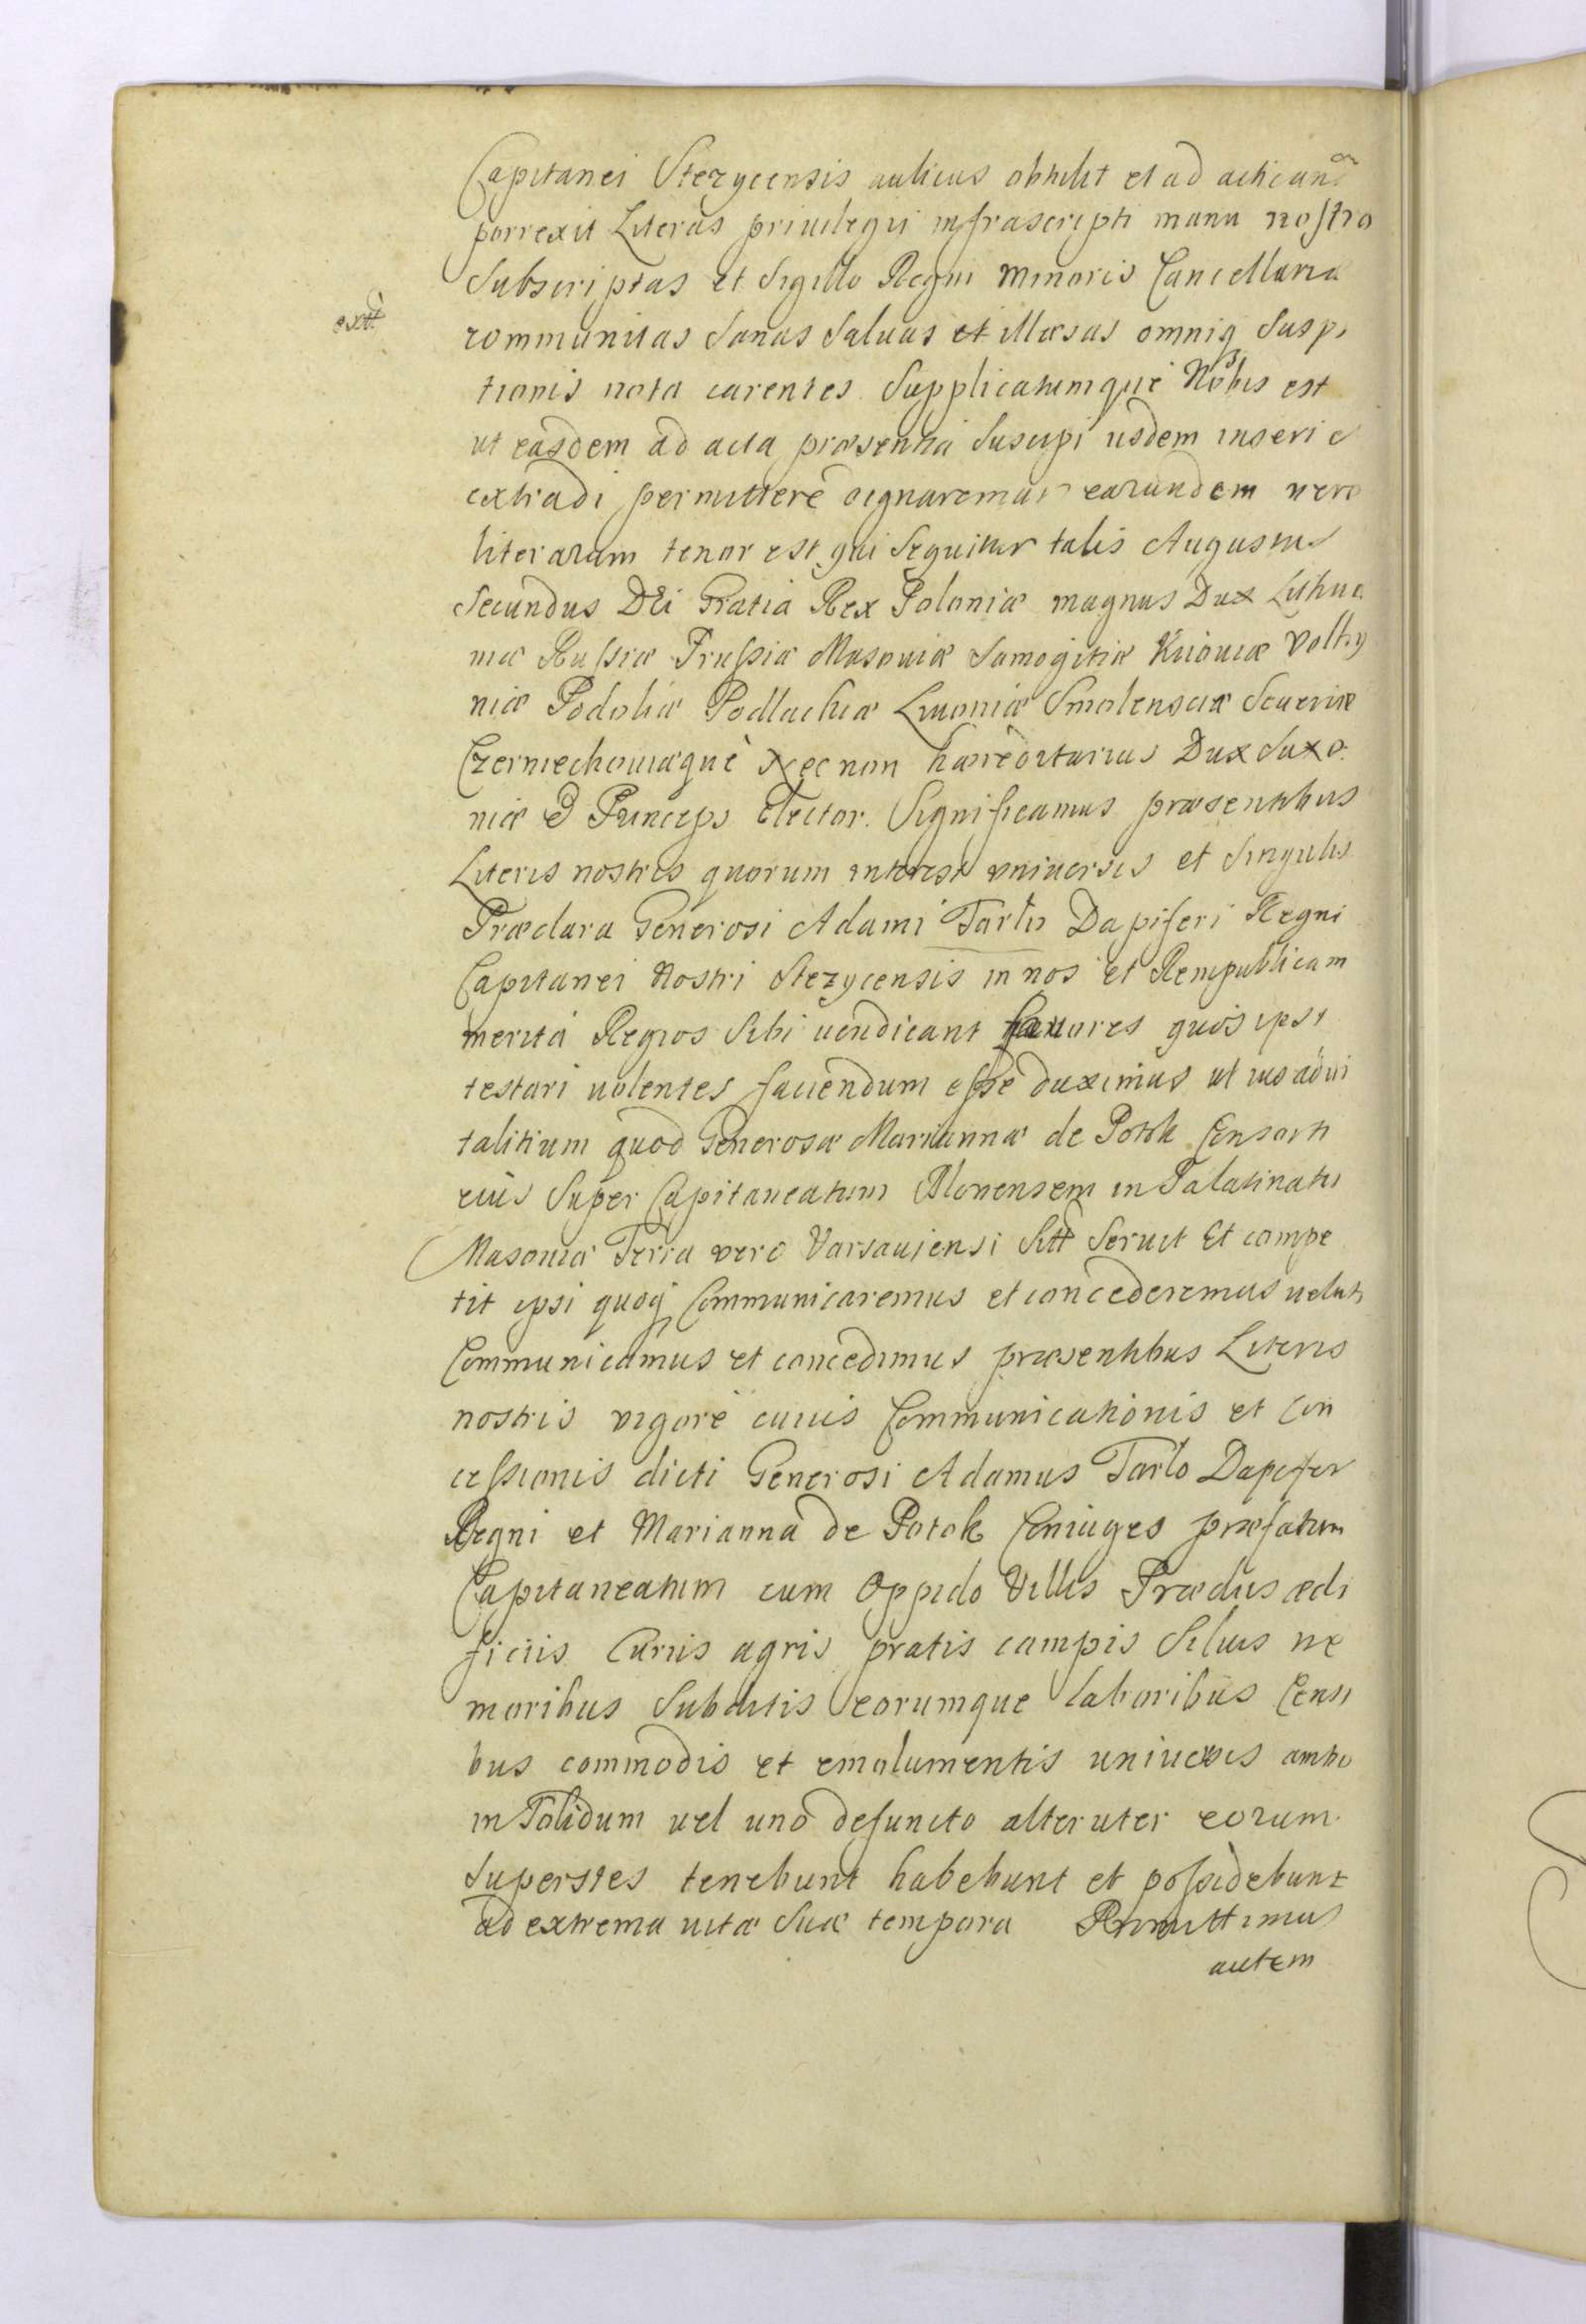 Capitanei Stezycensis aulicus obtulit et ad acticand
porrexit Literas priuilegii infrascripti manu nostra
Subscriptas et Sigillo Regni minoris Cancellariæ
extt
communitas Sanas Saluas et illæsas omniq Suspi
tionis nota carentes Supplicatumque Nobis est
ut easdem ad acta præsentia Suscipi iisdem inseri et
extradi permittere dignaremur earundem vero
literarum tenor est qui Sequitur talis Augustus
Secundus Dei Gratia Rex Poloniæ magnus Dux Lithua
niæ Russiæ Prussiæ Masouiæ Samogitiæ Kiiouiæ Volhy
niæ Podoliæ Podlachiæ Liuoniæ Smolensciæ Seueriæ
Czerniechouiæque Nec non hæreditarius Dux Saxo
niæ & Princeps Elector. Significamus præsentibus
Literis nostris quorum interest vniuersis et Singulis
Præclara Generosi Adami Tarło Dapiferi Regni
Capitanei Nostri Stezycensis in nos et Rempublicam
merita Regios Sibi uendicant fauores quos ipsi
testari uolentes faciendum esse duximus ut ius adui
talitium quod Generosæ Mariannæ de Potok Consorti
eius Super Capitaneatum Blonensem in Palatinatu
Masouiæ Terra vero Varsauiensi Sitt Seruit Et compe
tit ipsi quoq Communicaremus et concederemus ueluti
Communicamus et concedimus præsentibus Literis
nostris vigore cuius Communicationis et Con
cessionis dicti Generosi Adamus Tarło Dapifer
Regni et Marianna de Potok Coniuges præfatum
Capitaneatum cum Oppido Villis Prædiis ædi
ficiis Curiis agris pratis campis Siluis ne
moribus Subditis eorumque laboribus Censi
bus commodis et emolumentis uniuersis ambo
in Solidum uel uno defuncto alteruter eorum
Superstes tenebunt habebunt et possidebunt
ad extrema uitæ Suæ tempora Promittimus
autem